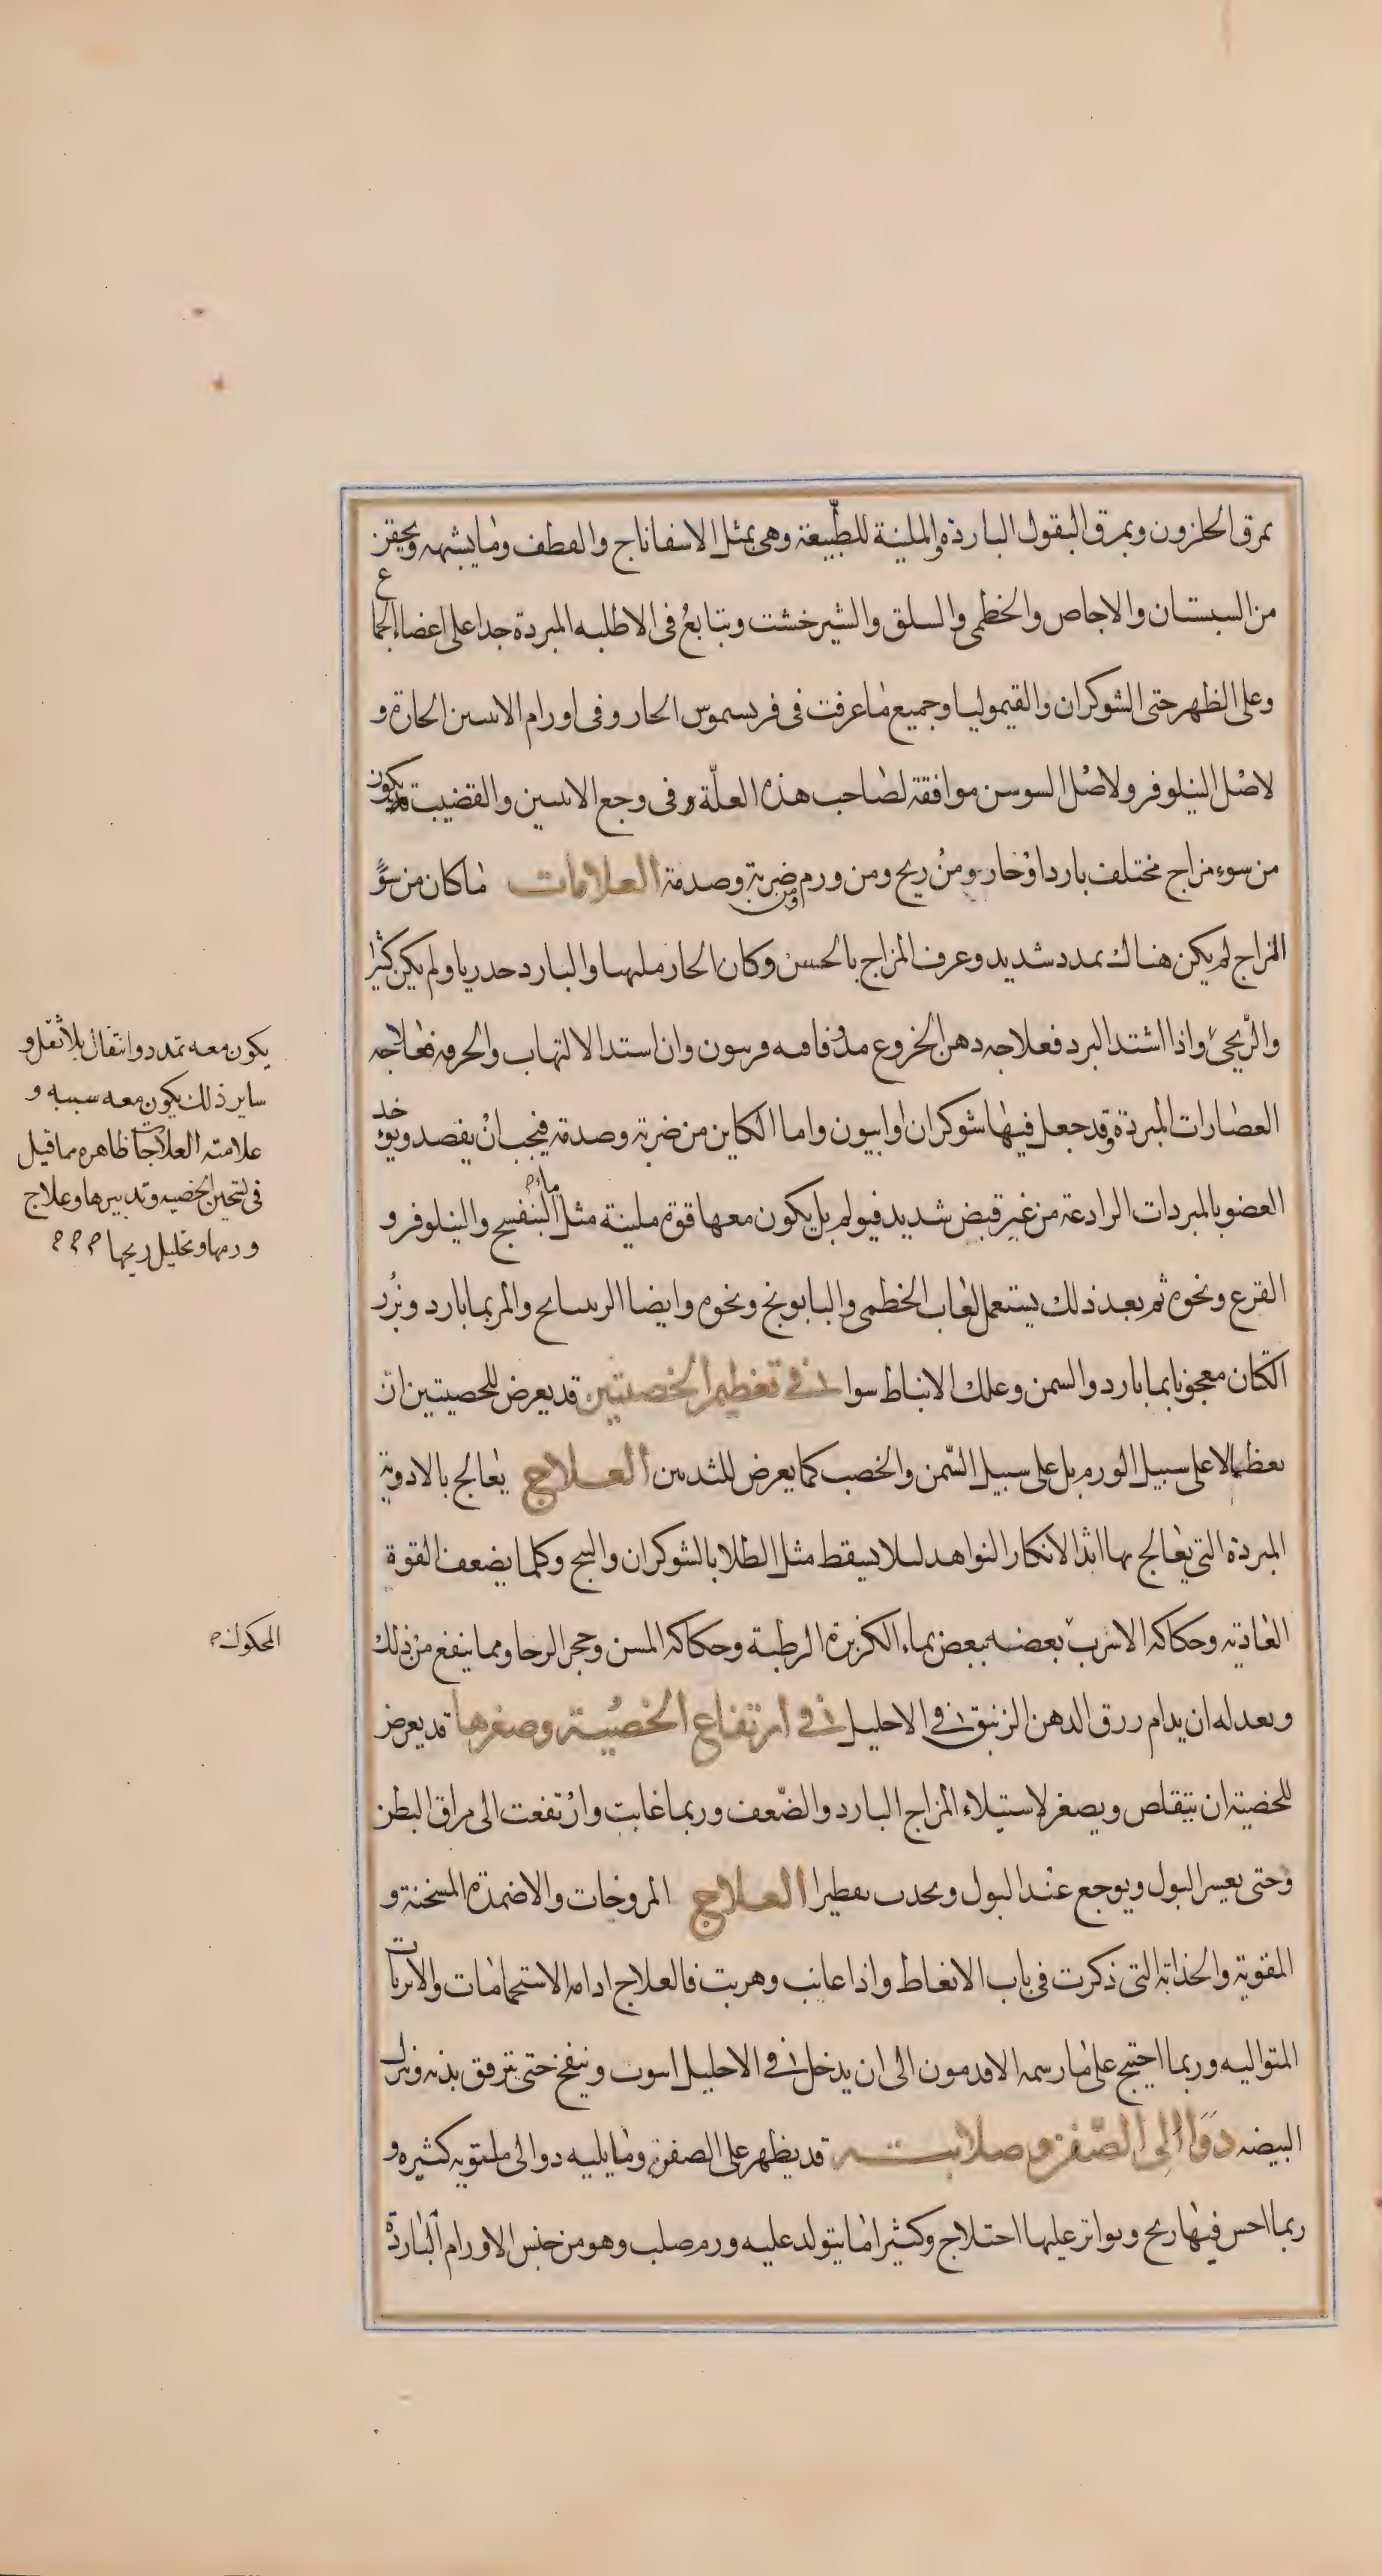 بمرق الحلزون وبمرق البقول الباردة والملينة للطبيعة وهى بمثل الاسفاناج والقطف وما يشبهه ويحقن
من السبستان والاجاص والخطمى والسلق والشيرخشت ويتابع فى الاطليه المبردة جدا على اعضاء الجماع
وعلى الظهر حتى الشوكران والقيموليا وجميع ما عرفت فى فريسموس الحار وفى اورام الانثيين الحارة و
لاصل النيلوفر ولاصل السوسن موافقة لصاحب هذه العلّة وفى وجع الانثيين والقضيب قد يكون
من سوء مزاج مختلف بارد او حار ومن ريح ومن ورم ومن ضربة وصدمة العلامات ما كان من سوء
المزاج لم يكن هناك تمدد شديد وعرف المزاج بالحس وكان الحار ملهبا والبارد خدريا ولم يكن كثيرا
والريحى واذا اشتد البرد فعلاجه دهن الخروع مدوفا فيه فربيون وان اشتد الالتهاب والحرقه فعلاجه
العصارات المبردة وقد جعل فيها شوكران وافيون واما الكاين من ضربة وصدمة فيجب ان يفصد ويؤخذ
العضو بالمبردات الرادعة من غير قبض شديد فيولم بل يكون معها قوة ملينة مثل ماء البنفسج والنيلوفر و
القرع ونحوه ثم بعد ذلك يستعمل لعاب الخطمى والبابونج ونحوه وايضا والمر بما بارد وبزر
الكتان معجونا بما بارد والسمن وعلك الانباط سوا فى تعظيم الخصيتين قد يعرض للخصيتين ان
تعظما لا على سبيل الورم بل على سبيل السّمن والخصب كما يعرض للثديين العلاج يعالج بالادوية
المبردة التى يعالج بها اثدا الابكار النواهد ليلا يسقط مثل الطلا بالشوكران والبنج وكلما يضعف القوة
الغاذيه وحكاكه الاسرب بعضه ببعض بماء الكزبرة الرطبة وحكاكه المسن وحجر الرحا ومما ينفع من ذلك
ان يدام زرق الدهن الزنبق فى الاحليل فى ارتفاع الخصية وصغرها قد يعرض
للخصية ان يتقلص ويصغر لاستيلاء المزاج البارد والضّعف وربما غابت وارتفعت الى مراق البطن
وحتى يعسر البول ويوجع عند البول ويحدث تقطيرا العلاج المروخات والاضمدة المسخنة و
المقوية والجذابة التى ذكرت فى باب الانعاظ واذا غابت وهربت فالعلاج ادامه الاستحمامات والابزنات
المتواليه وربما احتيج على ما رسمه الاقدمون الى ان يدخل فى الاحليل انبوب وينفخ حتى وينزل
البيضه دَوَاالى الصّفن وصلابته قد يظهر على الصفن وما يليه دوالى ملتويه كثيره و
ربما احس فيها ريح وتواتر عليها اختلاج وكثيرا ما يتولد عليه ورم صلب وهو من جنس الاورام الباردة
يكون معه تمدد وانتفاخ بلا ثقل و
ساير ذلك يكون معه سببه و
علامته العلاجات ظاهره مما قيل
فى تسخين الخصيه وتدبيرها وعلاج
ورمها وتحليل ريحها
المحكوك